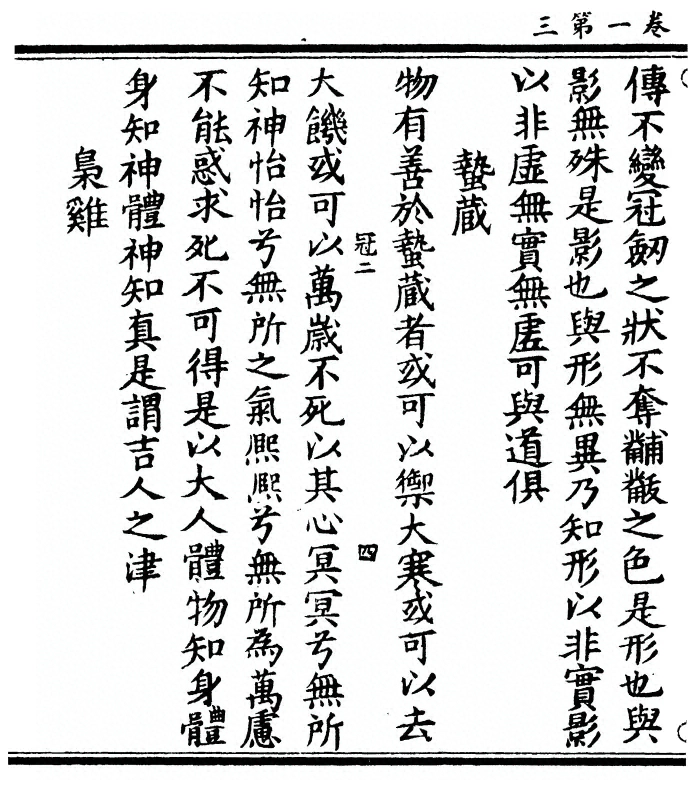 卷一第三
傳不變冠劒之狀不奪黼黻之色是形也與
影無殊是影也與形無異乃知形以非實影
以非虛無實無虛可與道俱
蟄藏
物有善於蟄藏者或可以禦大寒或可以去
冠二
四
大饑或可以萬歲不死以其心冥冥兮無所
知神怡怡兮無所之氣熈熈兮無所為萬慮
不能惑求死不可得是以大人體物知身體
身知神體神知真是謂吉人之津
梟雞